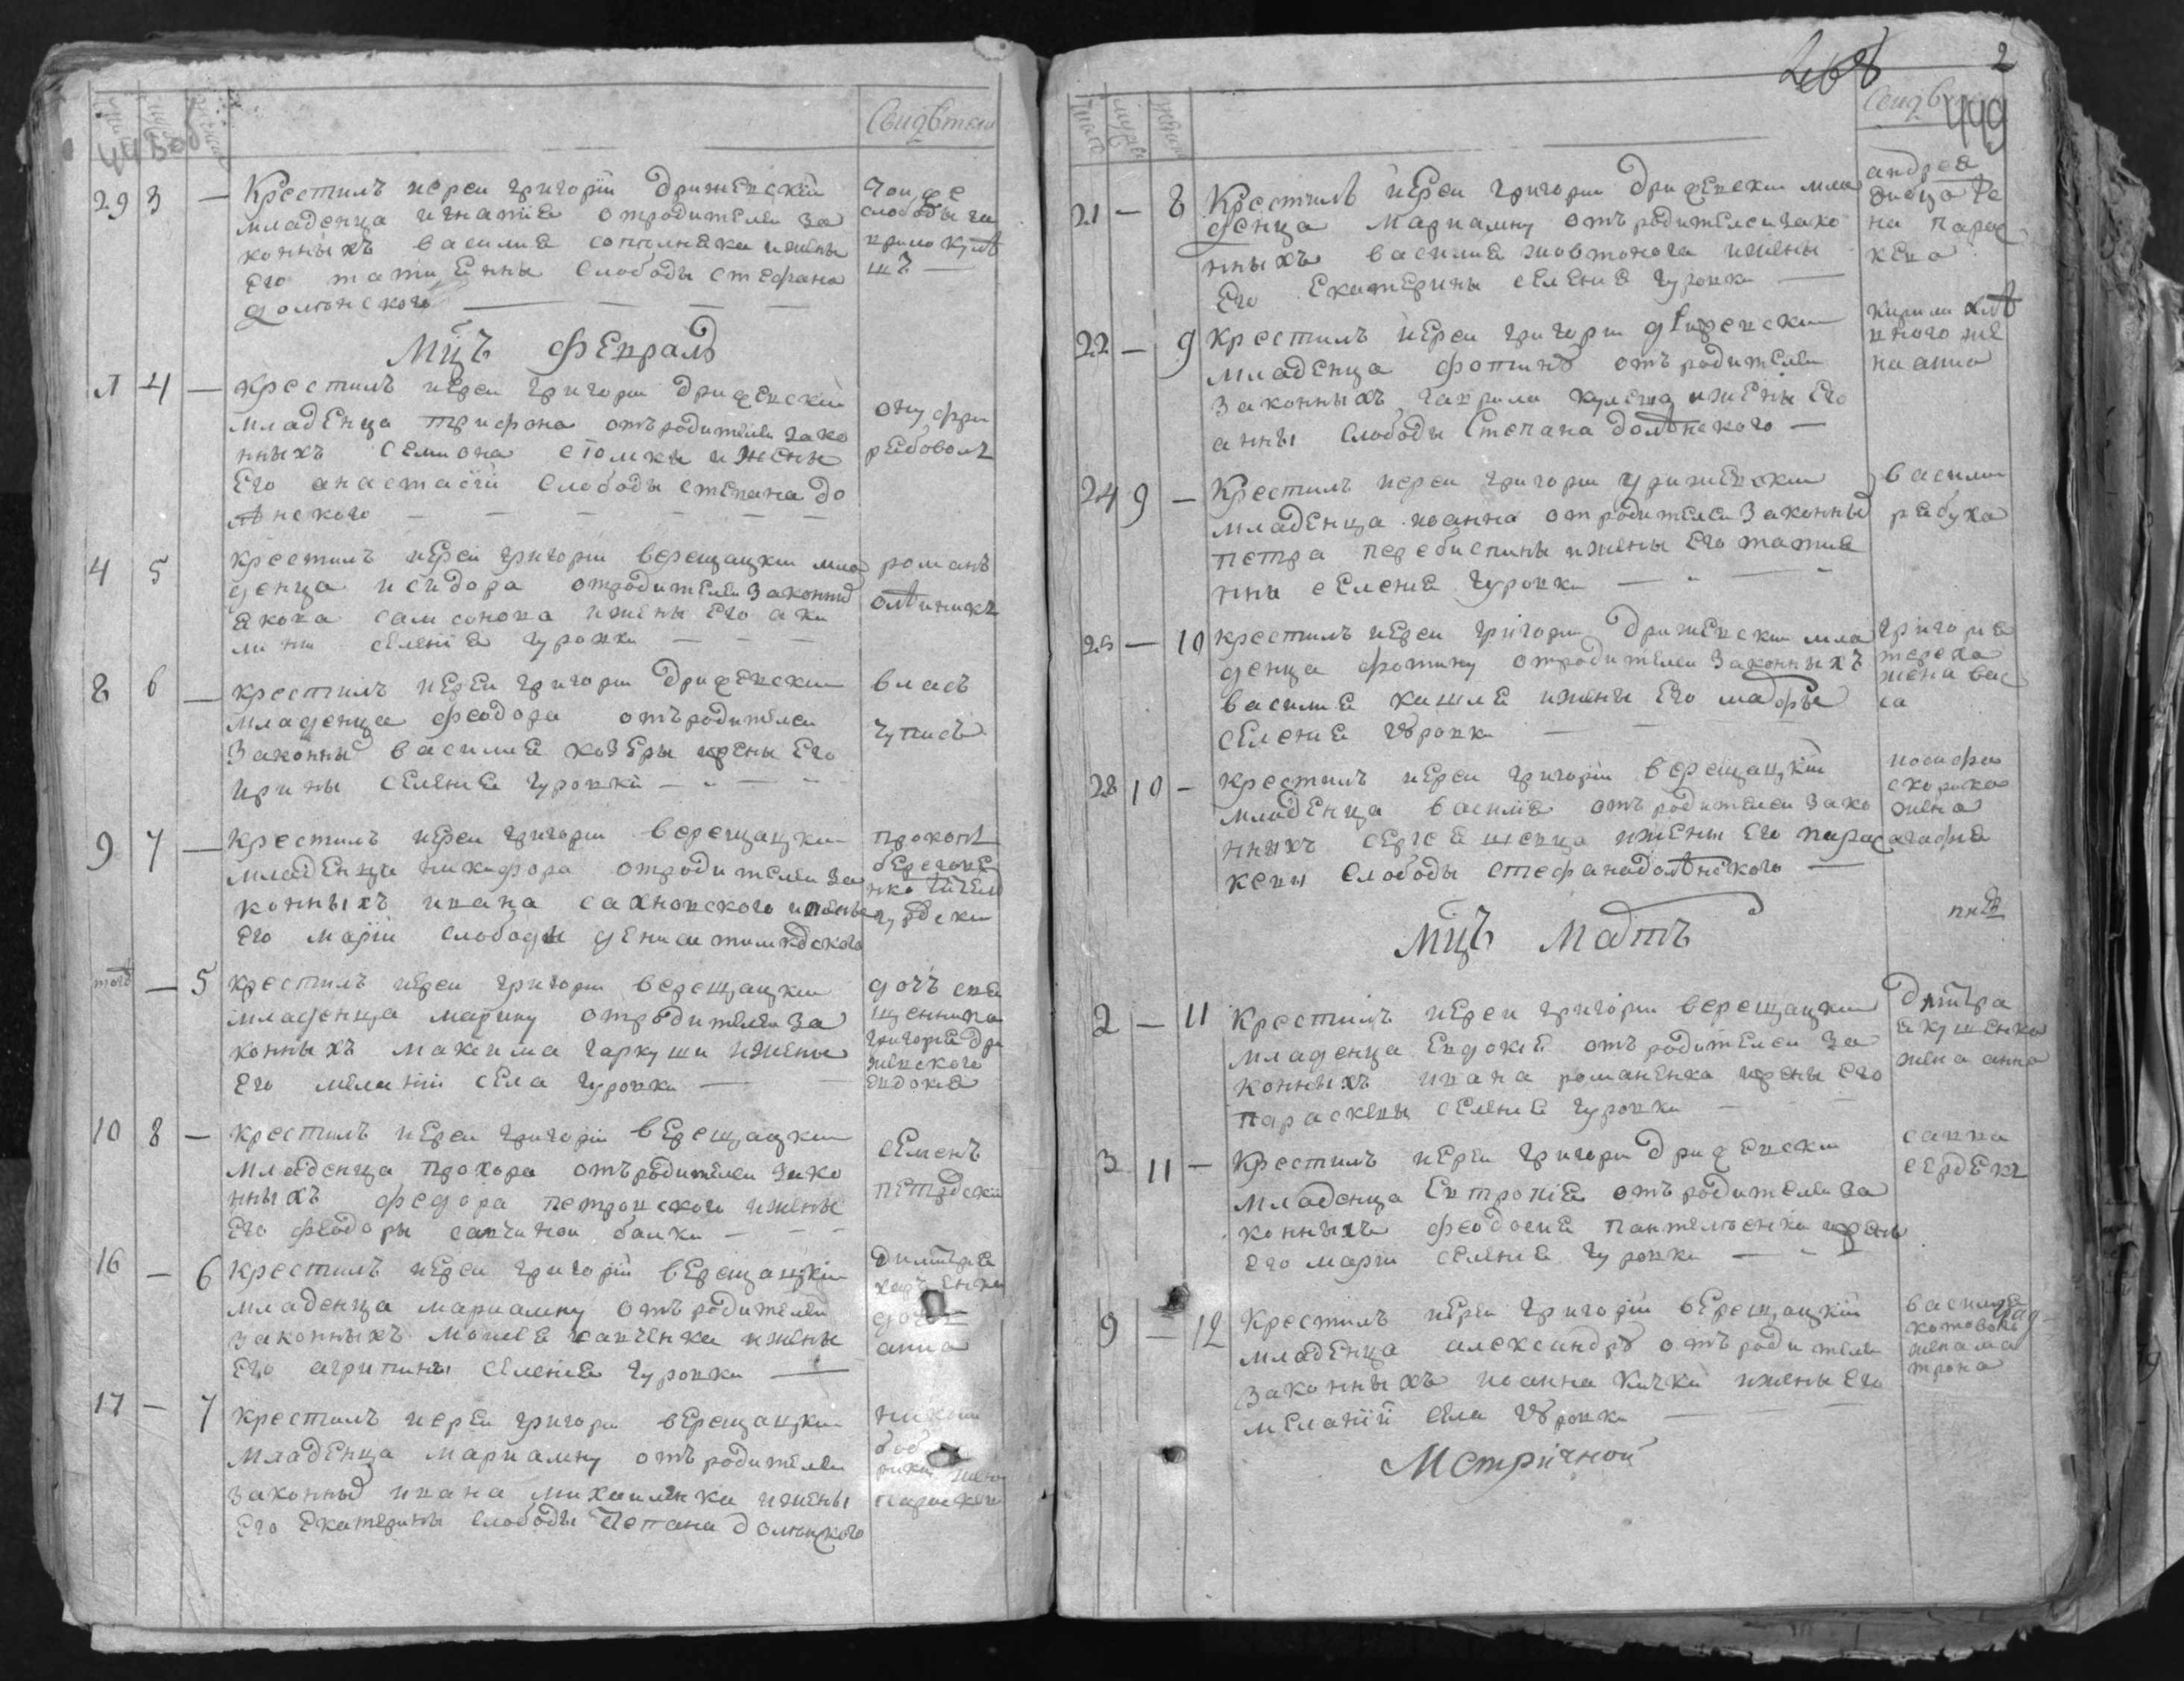 Свидѣтели
29 3 — Крестилъ иереи григории Дрижевскии
младенца игнатия отродителеи за
конныхъ василия сопилняка ижены
его татиянны слободы стефана
долѣнского
той же
слободы га
врило кулѣ
шъ —
Мцъ Февраль
Л 4 — Крестилъ иереи григории Дрижевскии
младенца трифона отъродителеи зако
нныхъ семиона стомки ижены
его анастасіи слободы степана до
лѣнского — — — — —
онуфри
рябоволъ
4 5 Крестилъ иереи григории верещацкии мла
денца исидора отродителеи законны
якова самсонова ижены его аки
лини селения гуровки — — —
романъ
олѣиникъ
8 6 — крестилъ иереи григории Дрижевскии
младенца феодора отъродителеи
законны василия козѣры ижены его
ирины селения гуровки — — —
власъ
9 7 — Крестилъ иереи григории верещацки
младенца никифора отродителеи за
конныхъ ивана сахновского ижены
его маріи слободы
прокопъ
того — 5 крестилъ иереи григории верещацкии
младенца марину отродителеи за
конныхъ максима гаркуши ижены
его мелании села гуровки — —
дочъ свя
щенника
григория дри
жевского
евдокия
10 8 — крестилъ иереи григории верещацкии
младенца прохора отъродителеи зако
нныхъ федора петровского ижены
его феодоры савчиной балки — — —
семенъ
петровски
16 — 6 крестилъ иереи григорій верещацкіи
младенца мариамну отъ родителеи
законныхъ моисея савченка ижены
его агрипины селения гуровки —
димитрия
дочь
анна
17 — 7 крестилъ иереи григори верещацки
младенца мариамну отъ родителеи
законны ивана михаиленка ижены
его екатерины слободы степана долѣнского
жена
параскеви
268 2
Свидѣтели 449
21 — 8 Крестилъ иереи григории Дрижевскии мла
денца мариамну отъ родителеи зако
нныхъ василия жовтонога ижены
его екатерины селения гуровки —
андрея
на парас
кева
22 — 9 крестилъ иереи григории дрижевскии
младенца фотину отъ родителеи
законныхъ гаврила кулеша ижены его
анны слободы Степана долѣнского —
кирила
жe
на анна
24 9 — Крестилъ иереи григории дрижевскии
младенца иоанна отродителеи законны
петра перебиспины ижены его татия
нны селения гуровки — —
василии
рябуха
25 — 10 крестилъ иереи григории Дрижевскии мла
денца фотину отродителеи законныхъ
василия кашля ижены его мафры
селения гуровки — —
григория
тереха
жена вас
са
28 10 — крестилъ иереи григории верещацкіи
младенца василія отъ родителеи зако
нныхъ сергея шевца ижены его парас
кевы слободы стефанадолѣнского —
иосифа
жена
агафия
Мцъ Мартъ
2 — 11 Крестилъ иереи григории верещацкии
младенца евдокія отъ родителеи за
конныхъ ивана романенка ижены его
параскевы селения гуровки — —
Дмитра
якушенка
жена анна
3 11 — Крестилъ иереи григори Дрижевски
младенца евтропія отъ родителеи за
конныхъ феодосия пантелѣенка ижены
его марии селения гуровки — —
савва
сердекъ
9 — 12 Крестилъ иереи григории верещацкіи
младенца александру отъ родителеи
законныхъ иоанна кички ижены его
меланіи села гуровки —
василия
жена ма
трона
Метричной